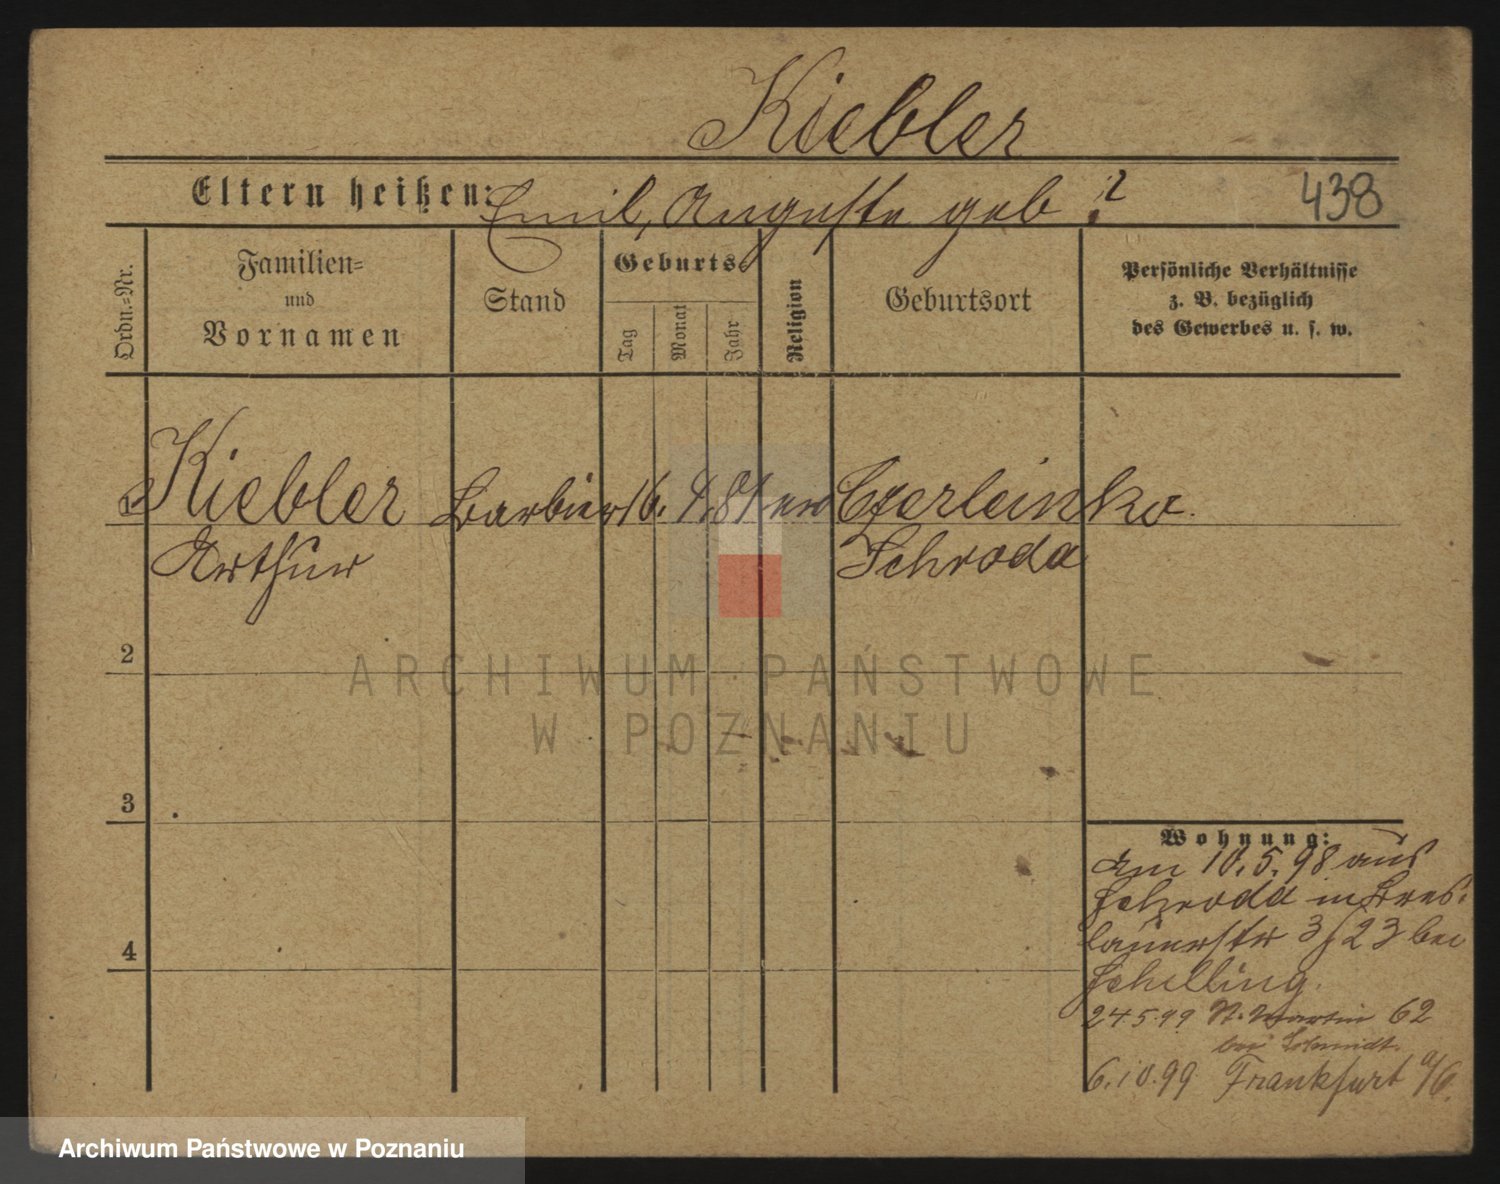 Kiebler
Eltern heißen: Emil, Auguste geb ? 438
Ordn.=Nr.
Familien=
und
Vornamen
Stand
Geburts=
Tag
Monat
Jahr
Religion
Geburtsort
Persönliche Verhältnisse
z. B. bezüglich
des Gewerbes u. s. w.
1 Kiebler Barbier 16. 4. 81 ev Czerleinko.
Arthur Schroda
2
ARCHIWUM PAŃSTWOWE
W POZNANIU
3
Wohnung:
am 10.5.98 aus
Schroda in Bres-
lauerstr 23 bei
Schilling.
4
24.5.99 St. Martin 62
bei Schmidt.
6.10.99 Frankfurt a/O.
Archiwum Państwowe w Poznaniu